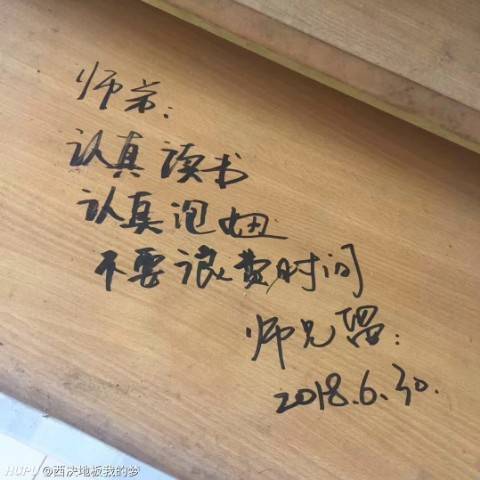 师弟：
认真读书
认真泡妞
不要浪费时间
师兄留：
2018.6.30.
HUPU @西决地板我的梦